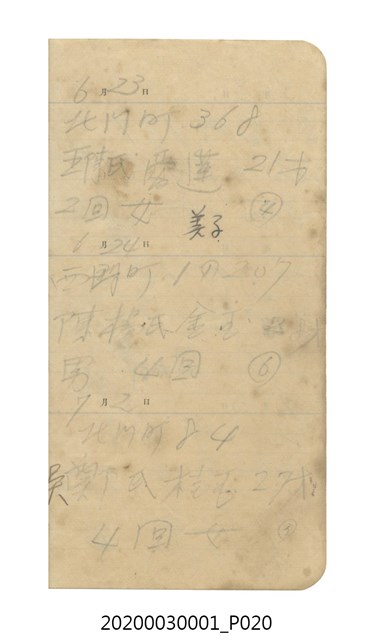 6月23日
北門町 368
王陳氏 蓮 21才
2回 女 美子 ④
6月24日
西門町 1の207
陳 氏金玉
男 4回 ⑥
7月2日
北門町 84
吳鄭氏 玉 27才
4回 女
20200030001_P020